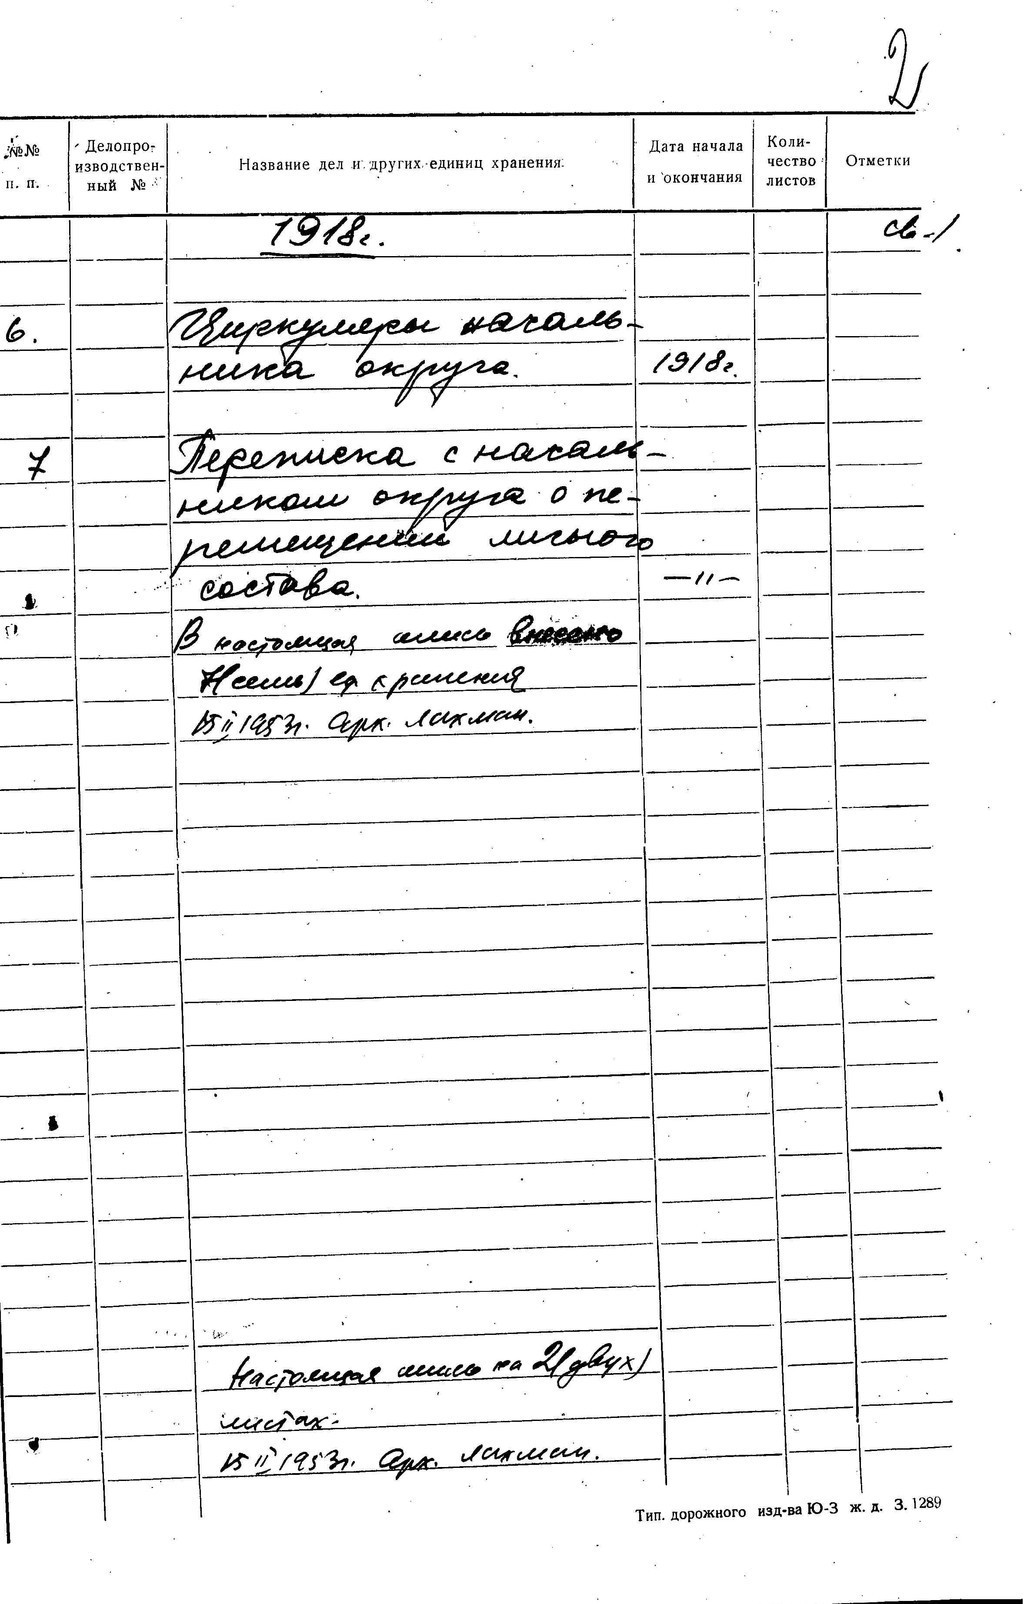 2
№№ п. п.
Делопро-
изводствен-
ный №
Название дел и других единиц хранения
Дата начала
и окончания
Коли-
чество
листов
Отметки
1918г.
св-1
6.
Циркуляры началь-
ника округа.
1918г.
7
Переписка с началь-
ником округа о пе-
ремещении личного
состава.
—"—
В настоящая опись внесено
7(семь) ед хранения
15 II 1953г. Арх. Лахман.
Настоящая опись на 2(двух)
листах.
15 II 1953г. Арх. Лахман.
Тип. дорожного изд-ва Ю-З ж. д. З. 1289